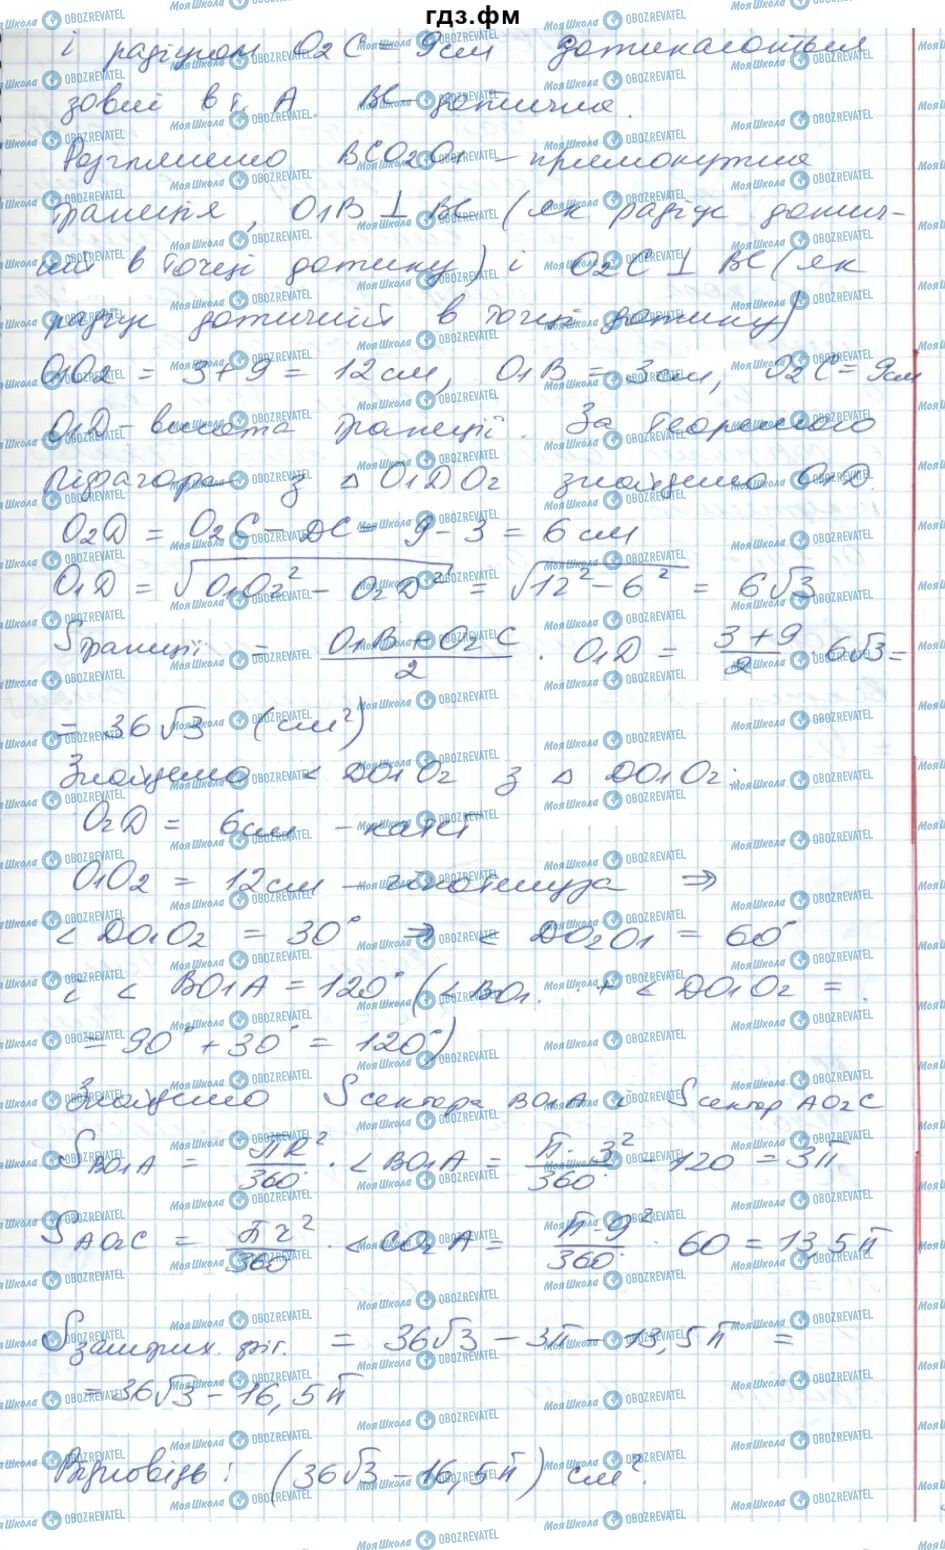 гдз.фм
і радіусом O2C = 9см дотикаються
зовні в т. A BC - дотична.
Розглянемо BCO2O1 - прямокутна
трапеція, O1B ⊥ BC (як радіус дотич-
ній в точці дотику) і O2C ⊥ BC (як
радіус дотичній в точці дотику)
O1O2 = 3+9 = 12см, O1B = 3см, O2C = 9см
O1D - висота трапеції. За теоремою
Піфагора з △ O1DO2 знайдемо O1D.
O2D = O2C - DC = 9 - 3 = 6 см
O1D = √(O1O2² - O2D²) = √(12² - 6²) = 6√3
Sтрапеції = (O1B + O2C)/2 · O1D = (3+9)/2 · 6√3 =
= 36√3 (см²)
Знайдемо < DO1O2 з △ DO1O2.
O2D = 6см - катет
O1O2 = 12см - гіпотенуза ⇒
< DO1O2 = 30° ⇒ < DO2O1 = 60°
і < BO1A = 120° (< BO1. + < DO1O2 =
= 90° + 30° = 120°)
Знайдемо Sсектора BO1A і Sсектор AO2C
SBO1A = πR²/360 · < BO1A = π·3²/360 · 120 = 3π
SAO2C = πr²/360 · < CO2A = π·9²/360 · 60 = 13,5π
Sзаштрих. фіг. = 36√3 - 3π - 13,5π =
= 36√3 - 16,5π
Відповідь: (36√3 - 16,5π) см².
МояШкола OBOZREVATEL